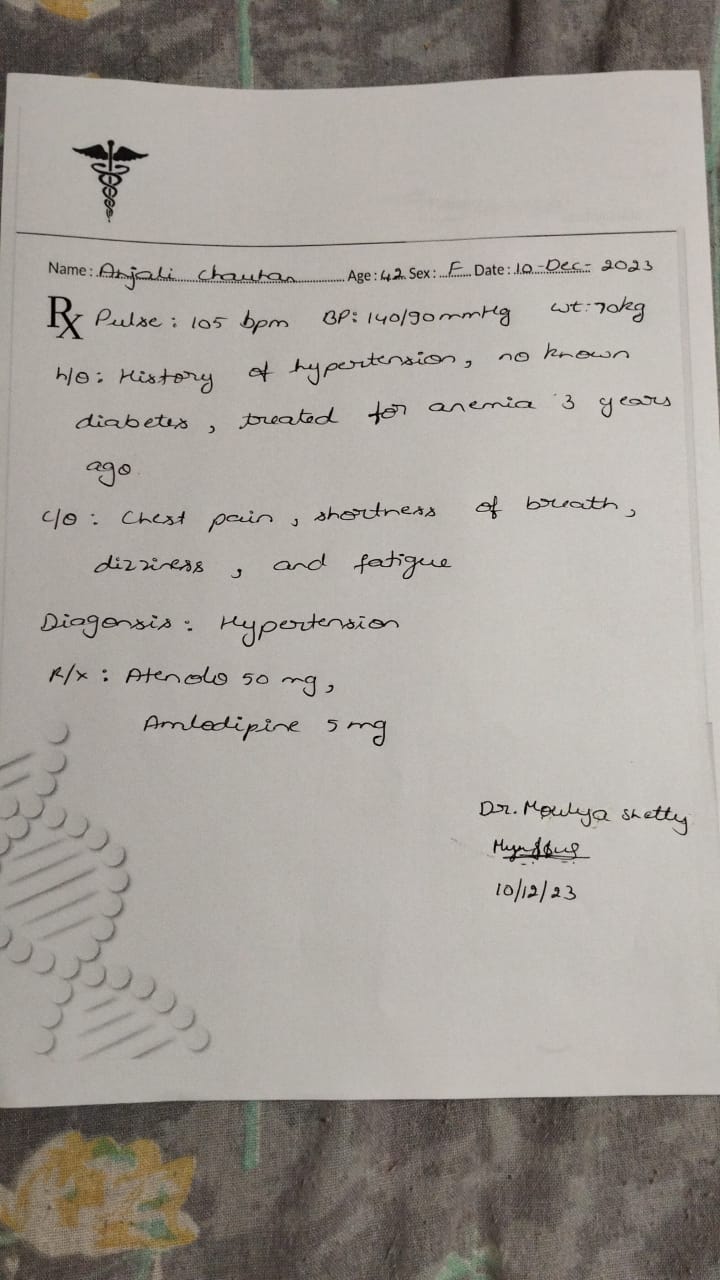 Name: Anjali Chauhan Age: 42 Sex: F Date: 10-Dec-2023
Rx Pulse: 105 bpm BP: 140/90mmHg wt: 70kg
h/o: History of hypertension, no known
diabetes, treated for anemia 3 years
ago
c/o: Chest pain, shortness of breath,
dizziness, and fatigue
Diagonsis: Hypertension
R/x: Atenolo 50 mg,
Amlodipine 5 mg
Dr. Moulya Shetty
10/12/23